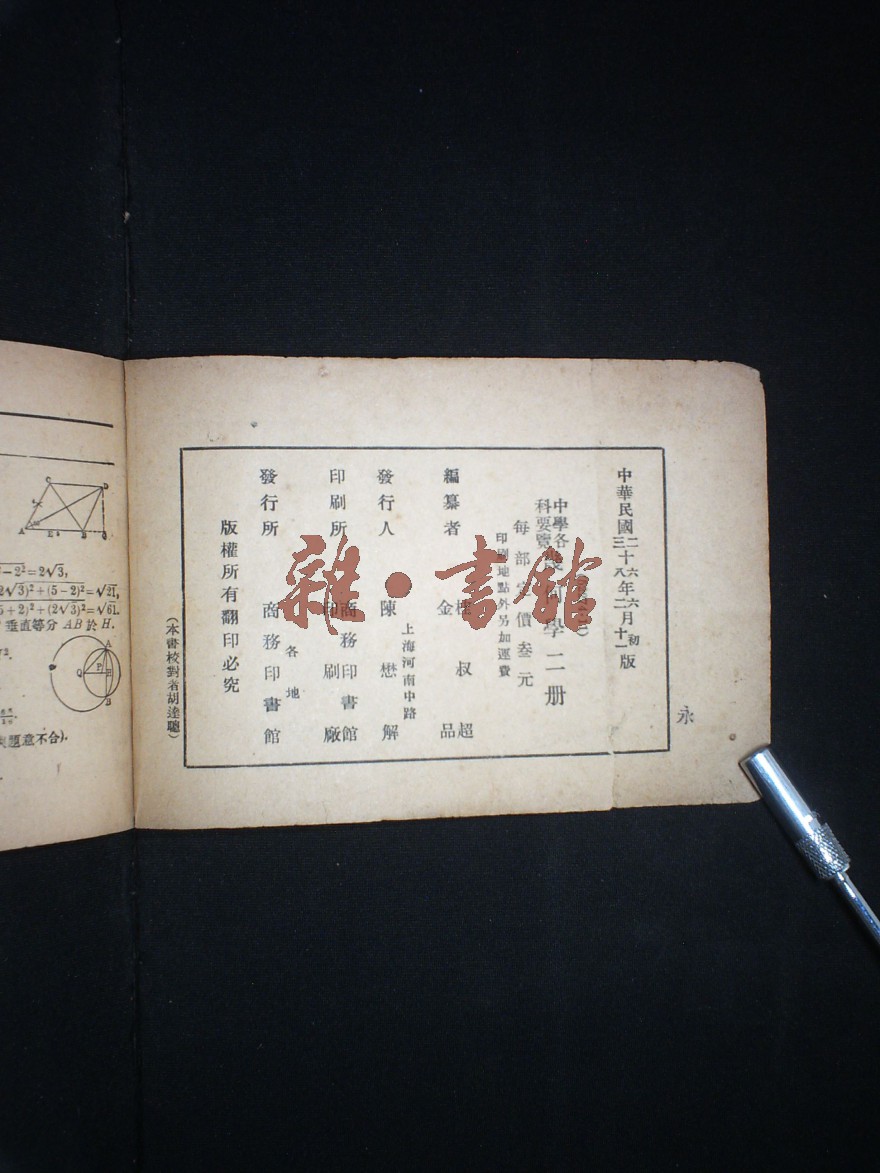 中華民國二十六年六月初版
三八年二月十一版
中學各科要覽 幾何學 二册
每部定價叁元
印刷地點外另加運費
編纂者 桂叔超 金品
發行人 陳懋解
上海河南中路
印刷所 商務印書館印刷廠
發行所 各地 商務印書館
版權所有翻印必究
(本書校對者胡達聰)
永
雜·書館
-2²=2√3,
2√3)²+(5-2)²=√21,
5+2)²+(2√3)²=√61.
垂直等分 AB 於 H.
題意不合).